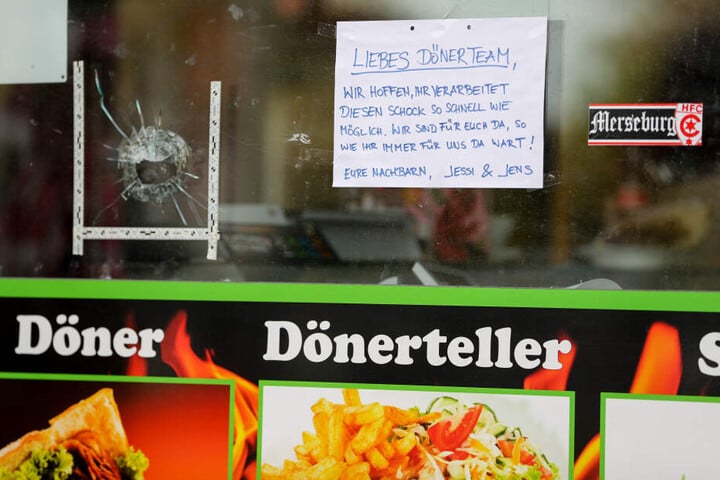 LIEBES DÖNERTEAM,
WIR HOFFEN, IHR VERARBEITET
DIESEN SCHOCK SO SCHNELL WIE
MÖGLICH. WIR SIND FÜR EUCH DA, SO
WIE IHR IMMER FÜR UNS DA WART!
EURE NACHBARN, JESSI & JENS
HFC
Merseburg
Döner
Dönerteller
S